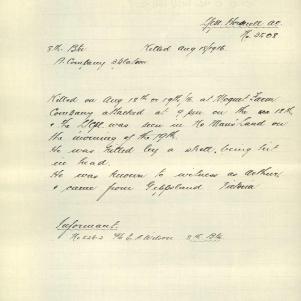 No. 2508
8th Btn Killed Aug 18/1916
A Company
Killed on Aug 18th or 19th/16 at Moquet Farm
Company attacked at 9 pm on the 18th
was seen in No Man's Land on
the morning of the 19th.
He was killed by a shell, being hit
in head.
He was known to witness as Arthur
& came from Gippsland
Informant.
Wilson 8th Btn